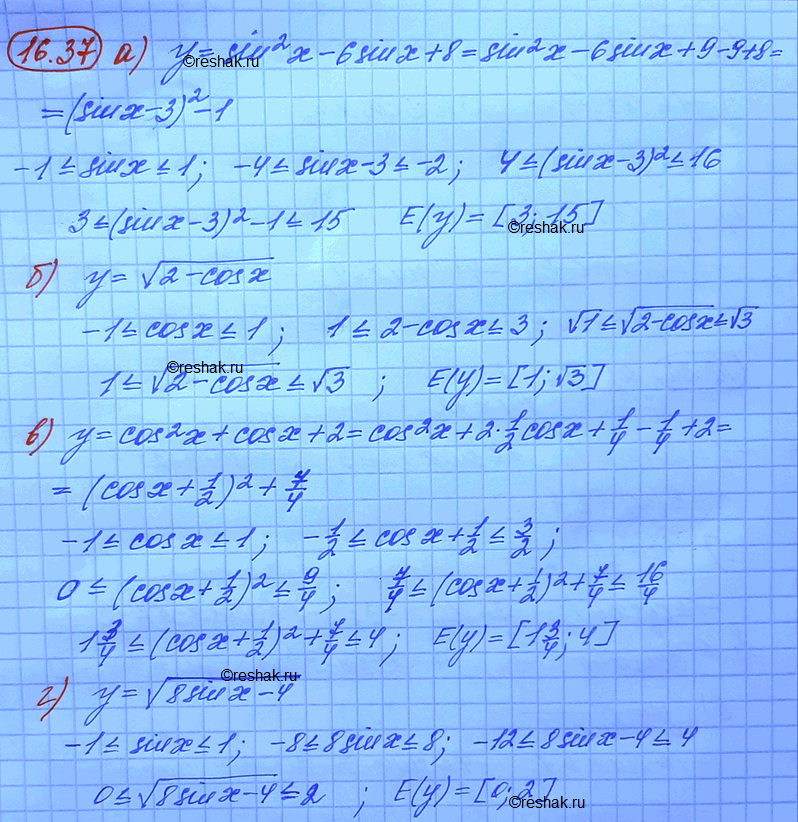 16.37 а) y = sin²x − 6sinx + 8 = sin²x − 6sinx + 9 − 9 + 8 =
©reshak.ru
= (sinx − 3)² − 1
−1 ≤ sinx ≤ 1; −4 ≤ sinx − 3 ≤ −2; 4 ≤ (sinx − 3)² ≤ 16
3 ≤ (sinx − 3)² − 1 ≤ 15 E(y) = [3; 15]
©reshak.ru
б) y = √(2 − cosx)
−1 ≤ cosx ≤ 1; 1 ≤ 2 − cosx ≤ 3; √1 ≤ √(2 − cosx) ≤ √3
©reshak.ru
1 ≤ √(2 − cosx) ≤ √3; E(y) = [1; √3]
в) y = cos²x + cosx + 2 = cos²x + 2·1/2 cosx + 1/4 − 1/4 + 2 =
= (cosx + 1/2)² + 7/4
−1 ≤ cosx ≤ 1; −1/2 ≤ cosx + 1/2 ≤ 3/2;
0 ≤ (cosx + 1/2)² ≤ 9/4; 7/4 ≤ (cosx + 1/2)² + 7/4 ≤ 16/4
1 3/4 ≤ (cosx + 1/2)² + 7/4 ≤ 4; E(y) = [1 3/4; 4]
©reshak.ru
г) y = √(8sinx − 4)
−1 ≤ sinx ≤ 1; −8 ≤ 8sinx ≤ 8; −12 ≤ 8sinx − 4 ≤ 4
0 ≤ √(8sinx − 4) ≤ 2; E(y) = [0; 2]
©reshak.ru